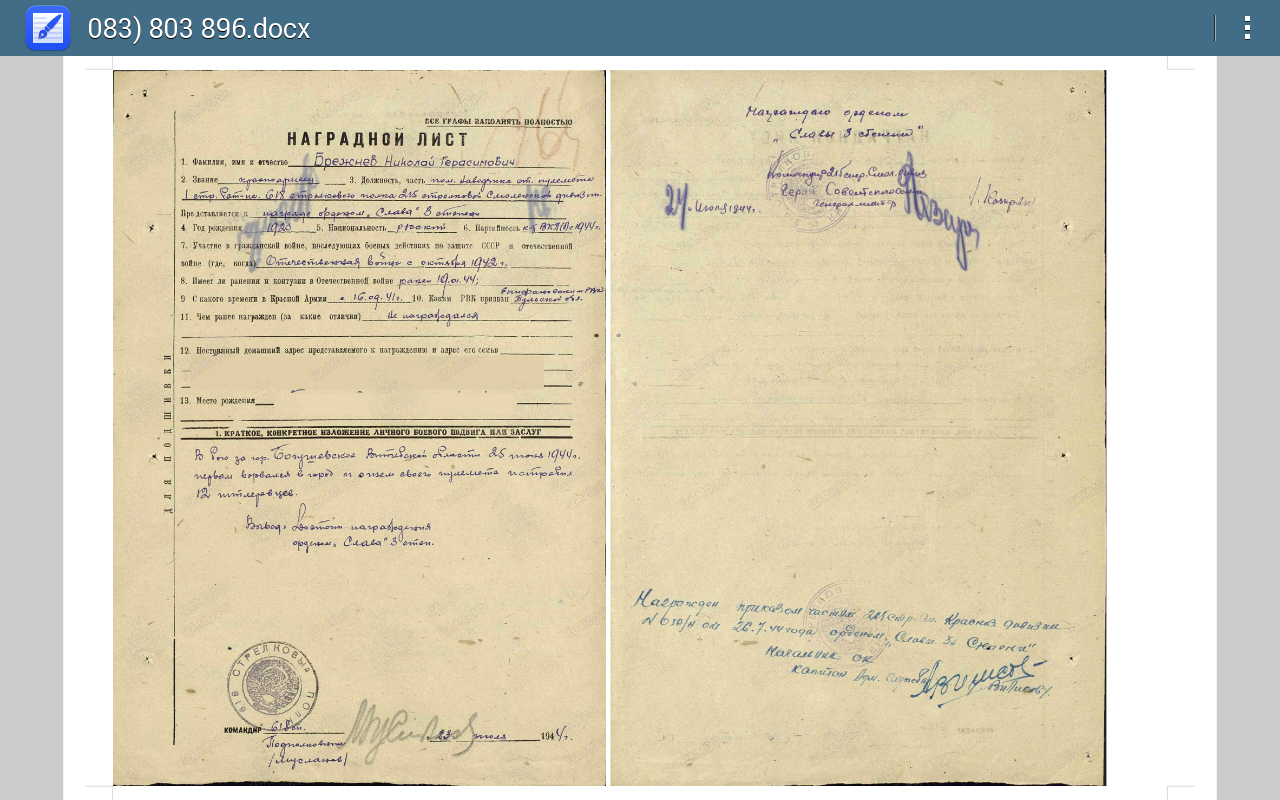 083) 803 896.docx
ВСЕ ГРАФЫ ЗАПОЛНЯТЬ ПОЛНОСТЬЮ
НАГРАДНОЙ ЛИСТ
1. Фамилия, имя и отчество Брежнев Николай Герасимович
2. Звание красноармеец 3. Должность, часть пом. наводчика ст. пулемета
1 стр. бат-на 618 стрелкового полка 215 стрелковой Смоленской дивизии
Представляется к награде орденом „Слава" 3 степени
4. Год рождения 1923 5. Национальность русский 6. Партийность ВКП(б) с 1944г.
7. Участие в гражданской войне, последующих боевых действиях по защите СССР и отечественной
войне (где, когда) Отечественная война с октября 1942 г.
8. Имеет ли ранения и контузии в Отечественной войне ранен 19.01.44;
9 С какого времени в Красной Армии с 16.09.41г. 10. Каким РВК призван Епифановским РВК
Тульской обл.
11. Чем ранее награжден (за какие отличия) Не награждался
12. Постоянный домашний адрес представляемого к награждению и адрес его семьи
13. Место рождения
ДЛЯ ПОДШИВКИ
1. КРАТКОЕ, КОНКРЕТНОЕ ИЗЛОЖЕНИЕ ЛИЧНОГО БОЕВОГО ПОДВИГА ИЛИ ЗАСЛУГ
В бою за гор. Богушевское Витебской области 25 июня 1944г.
первым ворвался в город и огнем своего пулемета истребил
12 гитлеровцев.
Вывод: Достоин награждения
орденом „Слава" 3 степ.
618 СТРЕЛКОВЫЙ ПОЛК
КОМАНДИР 618 сп.
Подполковник
/Мусланов/
23 июля 1944г.
Награждаю орденом
„Славы 3 степени"
Командир 215 стр. Смол. дивиз
Герой Советского Союза
генерал-майор
/. Казарян/
24 Июля 1944г.
Награжден приказом частям 215 стр. См. Красн. дивизии
N 050/н от 26.7.44 года орденом „Славы 3й Степени"
Начальник ОК
капитан Адм. службы